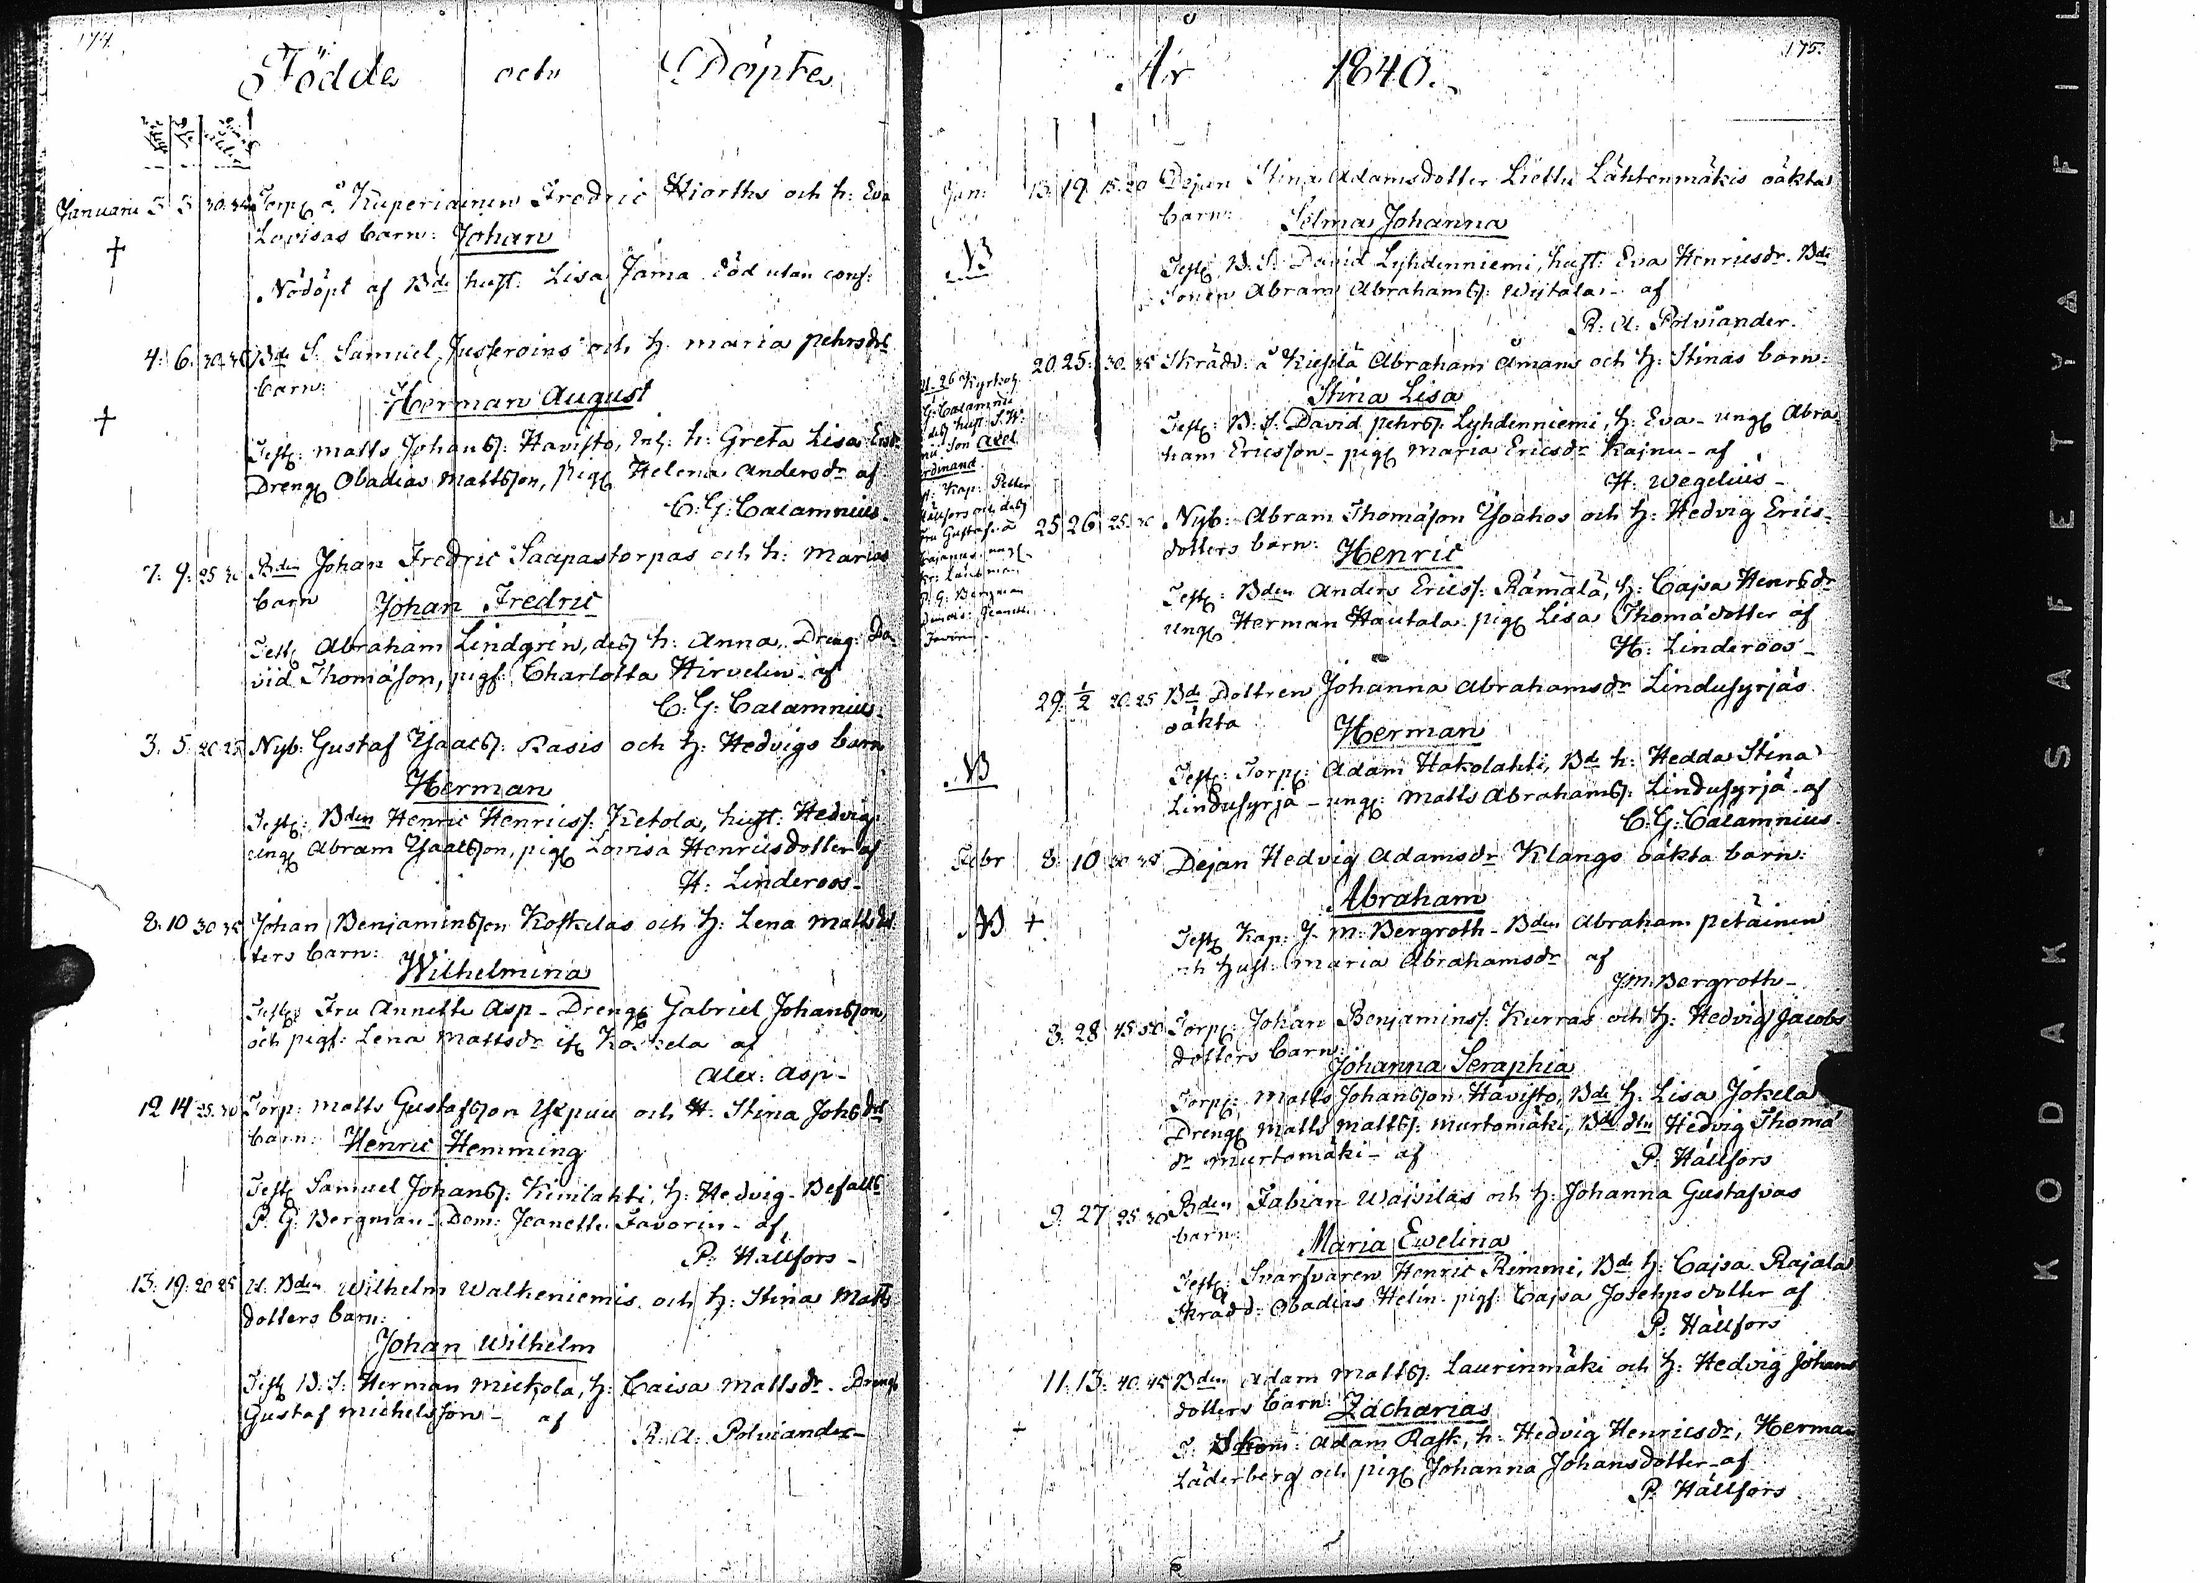 174.
Födde och Döpte
Januarii 3 3 30.34 Torp å Kuperiainen Fredric Hiorths och h: Eva
Lovisas barn: Johan
Nödöpt af Bde hust: Lisa Jama död utan conf:
4: 6: 30.36 Bde S: Samuel Juskeroins och h: Maria Pehrsdrs
barn:
Herman August
Test: Matts Johanss: Havisto, h: Greta Lisa
Dreng Obadias Mattsson, pig Helena Andersdr af
C: G: Calamnius.
7: 9: 25 30 Bden Johan Fredric Saapastorpas och h: Marias
barn Johan Fredric
Test Abraham Lindgrén, dess h: Anna, Dreng: Da-
vid Thomasson, pigs: Charlotta Hirvelin af
C: G: Calamnius.
3. 5: 20 25 Nyb: Gustaf Ysaacss: Rasis och h: Hedvigs barn
Herman
Test: Bden Henric Henricss: Ketola, hust: Hedvig.
ung Abram Ysaacsson, pig Lovisa Henricsdotter af
H: Linderoos-
8. 10 30 35 Johan Benjaminsson Koskelas och h: Lena Mattsdot-
ters barn: Wilhelmina
Test: Fru Annette Asp - Dreng Gabriel Johansson
och pigs: Lena Mattsdr Koskela af
Alex: Asp-
12 14 25.30 Torp: Matts Gustafsson Yxpuu och H: Stina Johsdrs
barn: Henric Hemming
Test Samuel Johanss: Kinilahti, h: Hedvig - Befallt
P: G: Bergman - Dem: Jeanette Favorin - af
P: Hällfors -
13: 19: 20 25 U. Bden Wilhelm Walkeniemis och h: Stina Matts
dotters barn:
Johan Wilhelm
Test B. S: Herman Mickola, h: Caisa Mattsdr - Dreng
Gustaf Michelsson - af
R: A: Polviander -
175.
År 1840.
Jan: 13. 19. 15. 20 Dejan Stina Adamsdotter Liettu Lähtenmäkis oäkta
barn: Selma Johanna
NB Test: B. S: David Lyhdenniemi, hust: Eva Henricsdr. Bde
Sonen Abram Abrahamss: Wistala - af
R: A: Polviander.
20. 25: 30. 35 Skrädd: å Kieselä Abraham Åmans och h: Stinas barn:
Stina Lisa
Test: B: S: David Pehrss: Lyhdenniemi, h: Eva - ung Abra-
ham Ericsson - pig Maria Ericsdr Kajnu - af
H: Wegelius -
26 Kyrkoh
G: Calamnii
dess hust: S: W:
son Axel
Ferdinand.
Kap: Petter
Hällfors och dess
Fru Gustafva
Cajanus. ung
P: G: Bergman
Jeanette
Favorin.
25 26 25. 30 Nyb: Abram Thomasson Yoahos och h: Hedvig Erics-
dotters barn: Henric
Test: Bden Anders Ericss: Rämälä, h: Cajsa Henrsdr
ung Herman Hautala. pig Lisa Thomadotter af
H: Linderoos -
29. ½ 20. 25 Bde Dottren Johanna Abrahamsdr Lindusyrjäs
oäkta Herman
NB Test: Torp: Adam Hakolahti, Bde h: Hedda Stina
Lindusyrjä - ung: Matts Abrahamss: Lindusyrjä - af
C: G: Calamnius.
Febr 8: 10 30 35 Dejan Hedvig Adamsdr Klangs oäkta barn:
Abraham
NB + Test Kap: J. M: Bergroth - Bden Abraham Petäinen
och Hust: Maria Abrahamsdr af
J: M: Bergroth -
3: 28 45 50 Torp: Johan Benjaminss: Kurras och h: Hedvig Jacobs
dotters barn:
Johanna Seraphia
Torp: Matts Johansson Havisto, Bde h: Lisa Jokela
Dreng Matts Mattss: Murtomäki, Bde dtr Hedvig Thoma
dr Murtomäki - af
P: Hällfors
9. 27 25 30 Bden Fabian Waivilas och h: Johanna Gustafvas
barn:
Maria Ewelina
Test: Svarfvaren Henric Rimmi, Bde h: Cajsa Rajala
Skrädd: Obadias Helin. pigs: Cajsa Josephsdotter af
P: Hällfors
11. 13: 40. 45 Bden Adam Mattss: Laurinmäki och h: Hedvig Johans
dotters barn: Zacharias
+ T: Skom: Adam Rask, h: Hedvig Henricsdr, Herman
Läderberg och pig Johanna Johansdotter - af
P: Hällfors
KODAK SAFETY FIL